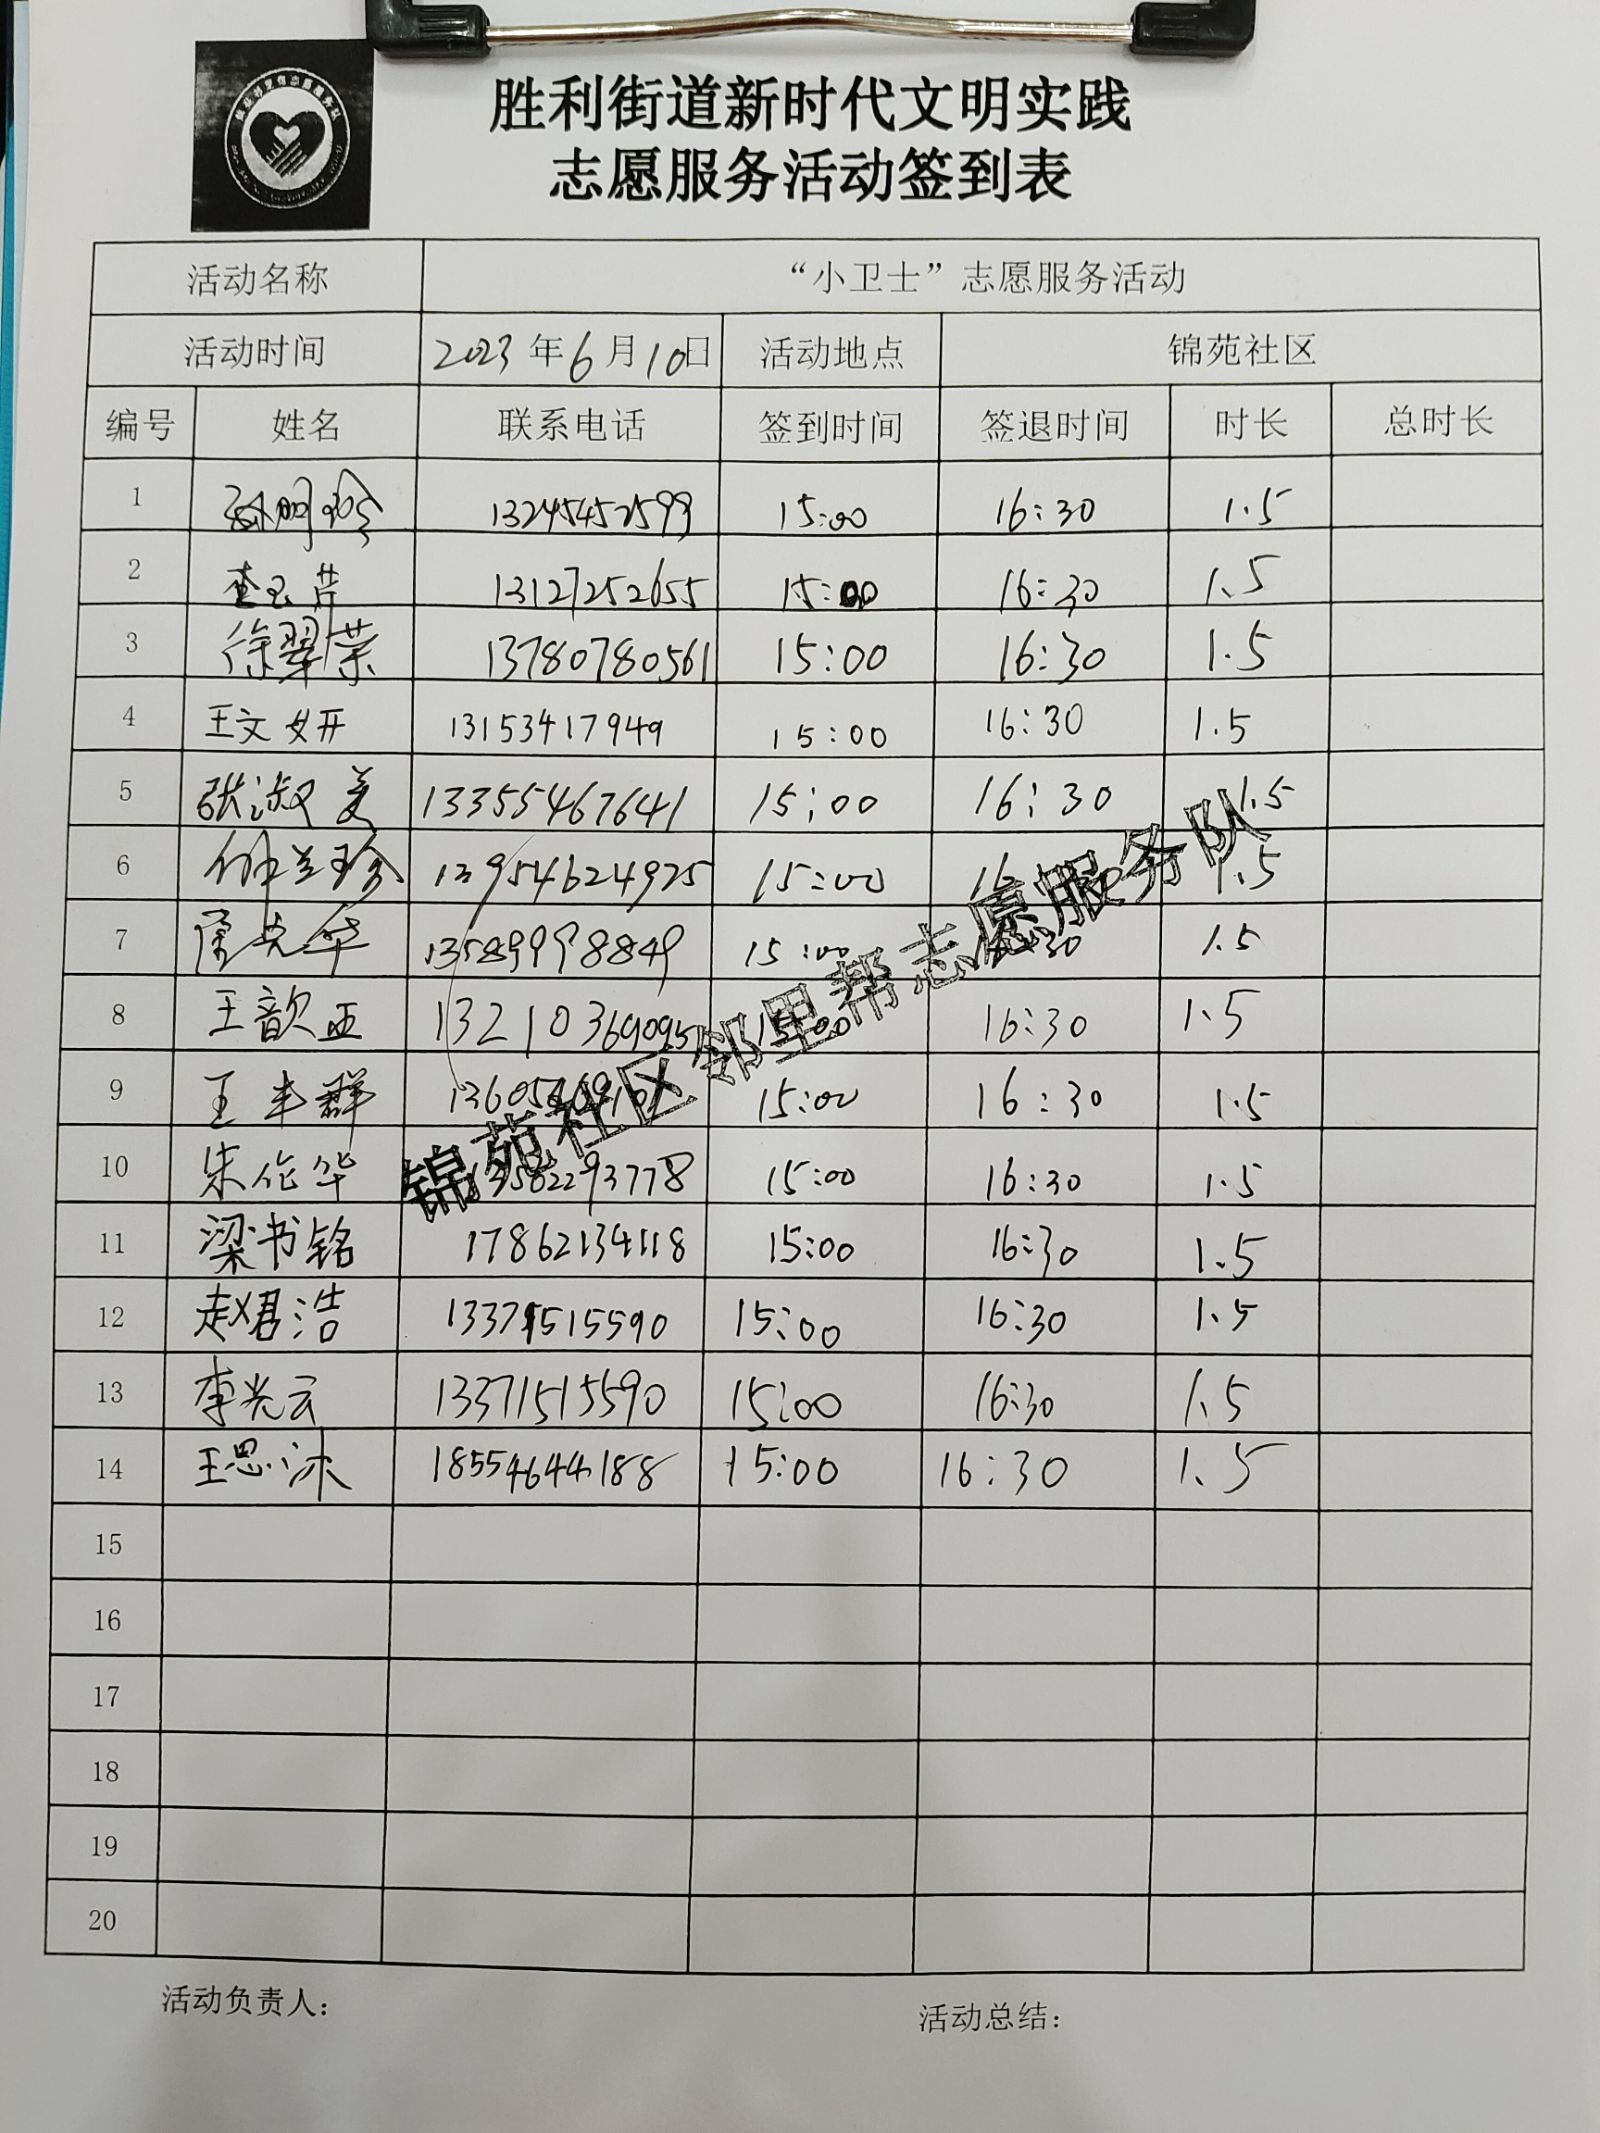 胜利街道新时代文明实践
志愿服务活动签到表
活动名称 “小卫士”志愿服务活动
活动时间 2023年6月10日 活动地点 锦苑社区
编号 姓名 联系电话 签到时间 签退时间 时长 总时长
1 孙明珍 13245452599 15:00 16:30 1.5
2 李玉芹 13127252655 15:00 16:30 1.5
3 徐翠荣 13780780561 15:00 16:30 1.5
4 王文妍 13153417949 15:00 16:30 1.5
5 张淑美 13355467641 15:00 16:30 1.5
6 兰珍 13954624925 15:00 16 1.5
7 华 13589998849 15:00 16:30 1.5
8 王歆亚 13210369095 15:00 16:30 1.5
9 王丰群 15:00 16:30 1.5
10 朱作华 13562293778 15:00 16:30 1.5
11 梁书铭 17862134118 15:00 16:30 1.5
12 赵君浩 13371515590 15:00 16:30 1.5
13 李光云 13371515590 15:00 16:30 1.5
14 王思沐 18554644188 15:00 16:30 1.5
15
16
17
18
19
20
锦苑社区邻里帮志愿服务队
活动负责人： 活动总结：